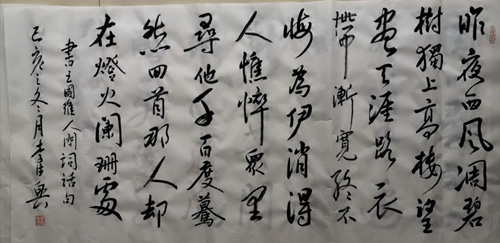 昨夜西风凋碧
樹獨上高樓望
盡天涯路衣
帶漸寬終不
悔為伊消得
人憔悴眾里
尋他千百度驀
然回首那人却
在燈火闌珊處
書王國維人间詞話句
己亥之冬月